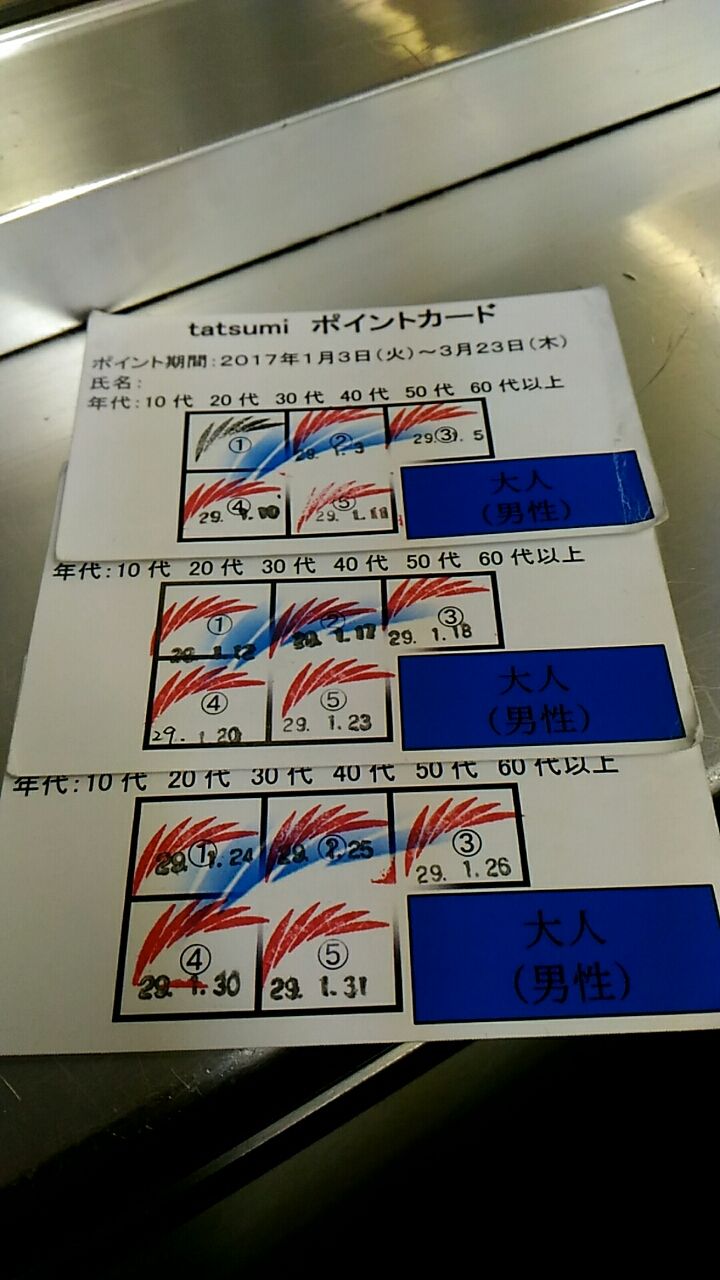 tatsumi ポイントカード
ポイント期間:2017年1月3日(火)～3月23日(木)
氏名:
年代:10代 20代 30代 40代 50代 60代以上
① ② ③
29. 1. 3 29. 1. 5
④ ⑤
29. 1. 10 29. 1. 11
大人
(男性)
年代:10代 20代 30代 40代 50代 60代以上
① ② ③
29. 1. 12 29. 1. 17 29. 1. 18
④ ⑤
29. 1. 20 29. 1. 23
大人
(男性)
年代:10代 20代 30代 40代 50代 60代以上
① ② ③
29. 1. 24 29. 1. 25 29. 1. 26
④ ⑤
29. 1. 30 29. 1. 31
大人
(男性)